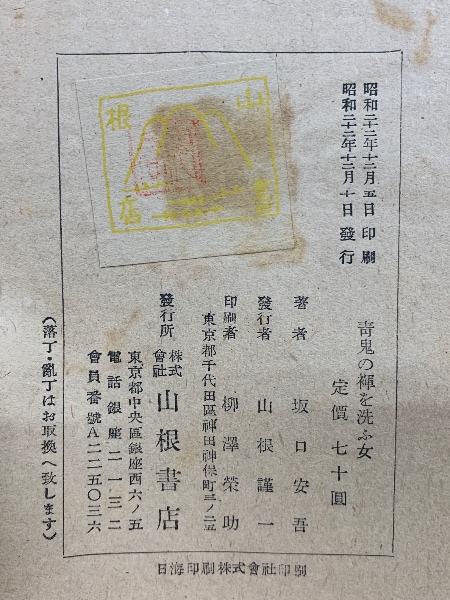 昭和二十二年十二月五日印刷
昭和二十二年十二月十日發行
靑鬼の褌を洗ふ女
定價 七十圓
著者 坂口安吾
發行者 山根謹一
印刷者 柳澤榮助
東京都千代田區神田神保町三ノ二五
發行所 株式會社 山根書店
東京都中央區銀座西六ノ五
電話銀座二一三二
會員番號A二二五〇三六
(落丁・亂丁はお取換へ致します)
日海印刷株式會社印刷
山
根
書
店